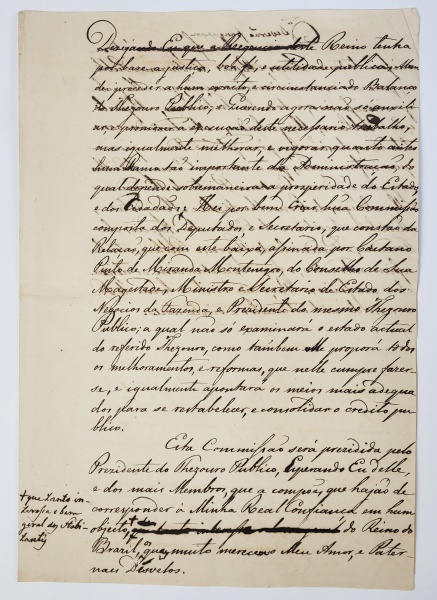 Dezejando Eu que a Regencia deste Reino tenha
por baze a justiça, boa fé, e utilidade publica, Man
dei proceder a hum exacto, e circunstanciado Balanço
do Thezouro Publico, e Querendo agora não só auxili
ar, e promover a execução deste necessario trabalho,
mas igualmente melhorar, e vigorar quanto antes
hum Ramo tão importante da Administração, do
qual depende sobremaneira a prosperidade do Estado,
e dos Cidadãos: Hei por bem Criar hũa Commissão
composta dos Deputados, e Secretario, que constão da
Relação, que com este baixa, assinada por Caetano
Pinto de Miranda Montenegro, do Conselho de Sua
Magestade, Ministro e Secretario de Estado dos
Negocios da Fazenda, e Presidente do mesmo Thezouro
Publico; a qual não só examinará o estado actual
do referido Thezouro, como tãobem Me proporá todos
os melhoramentos, e reformas, que nelle cumpre fazer-
se, e igualmente apontará os meios mais adequa
dos para se restabelecer, e consolidar o credito pu
blico.
Esta Commissão será prezidida pelo
Presidente do Thezouro Publico, Esperando Eu delle,
e dos mais Membros, que a compõe, que hajão de
corresponder á Minha Real Confiança em hum
+ que tanto in-
teressa o bem
geral dos Habi
tantes
objecto, + do Reino do
Brazil, que os muito merecem o Meu Amor, e Pater
naes Disvelos.